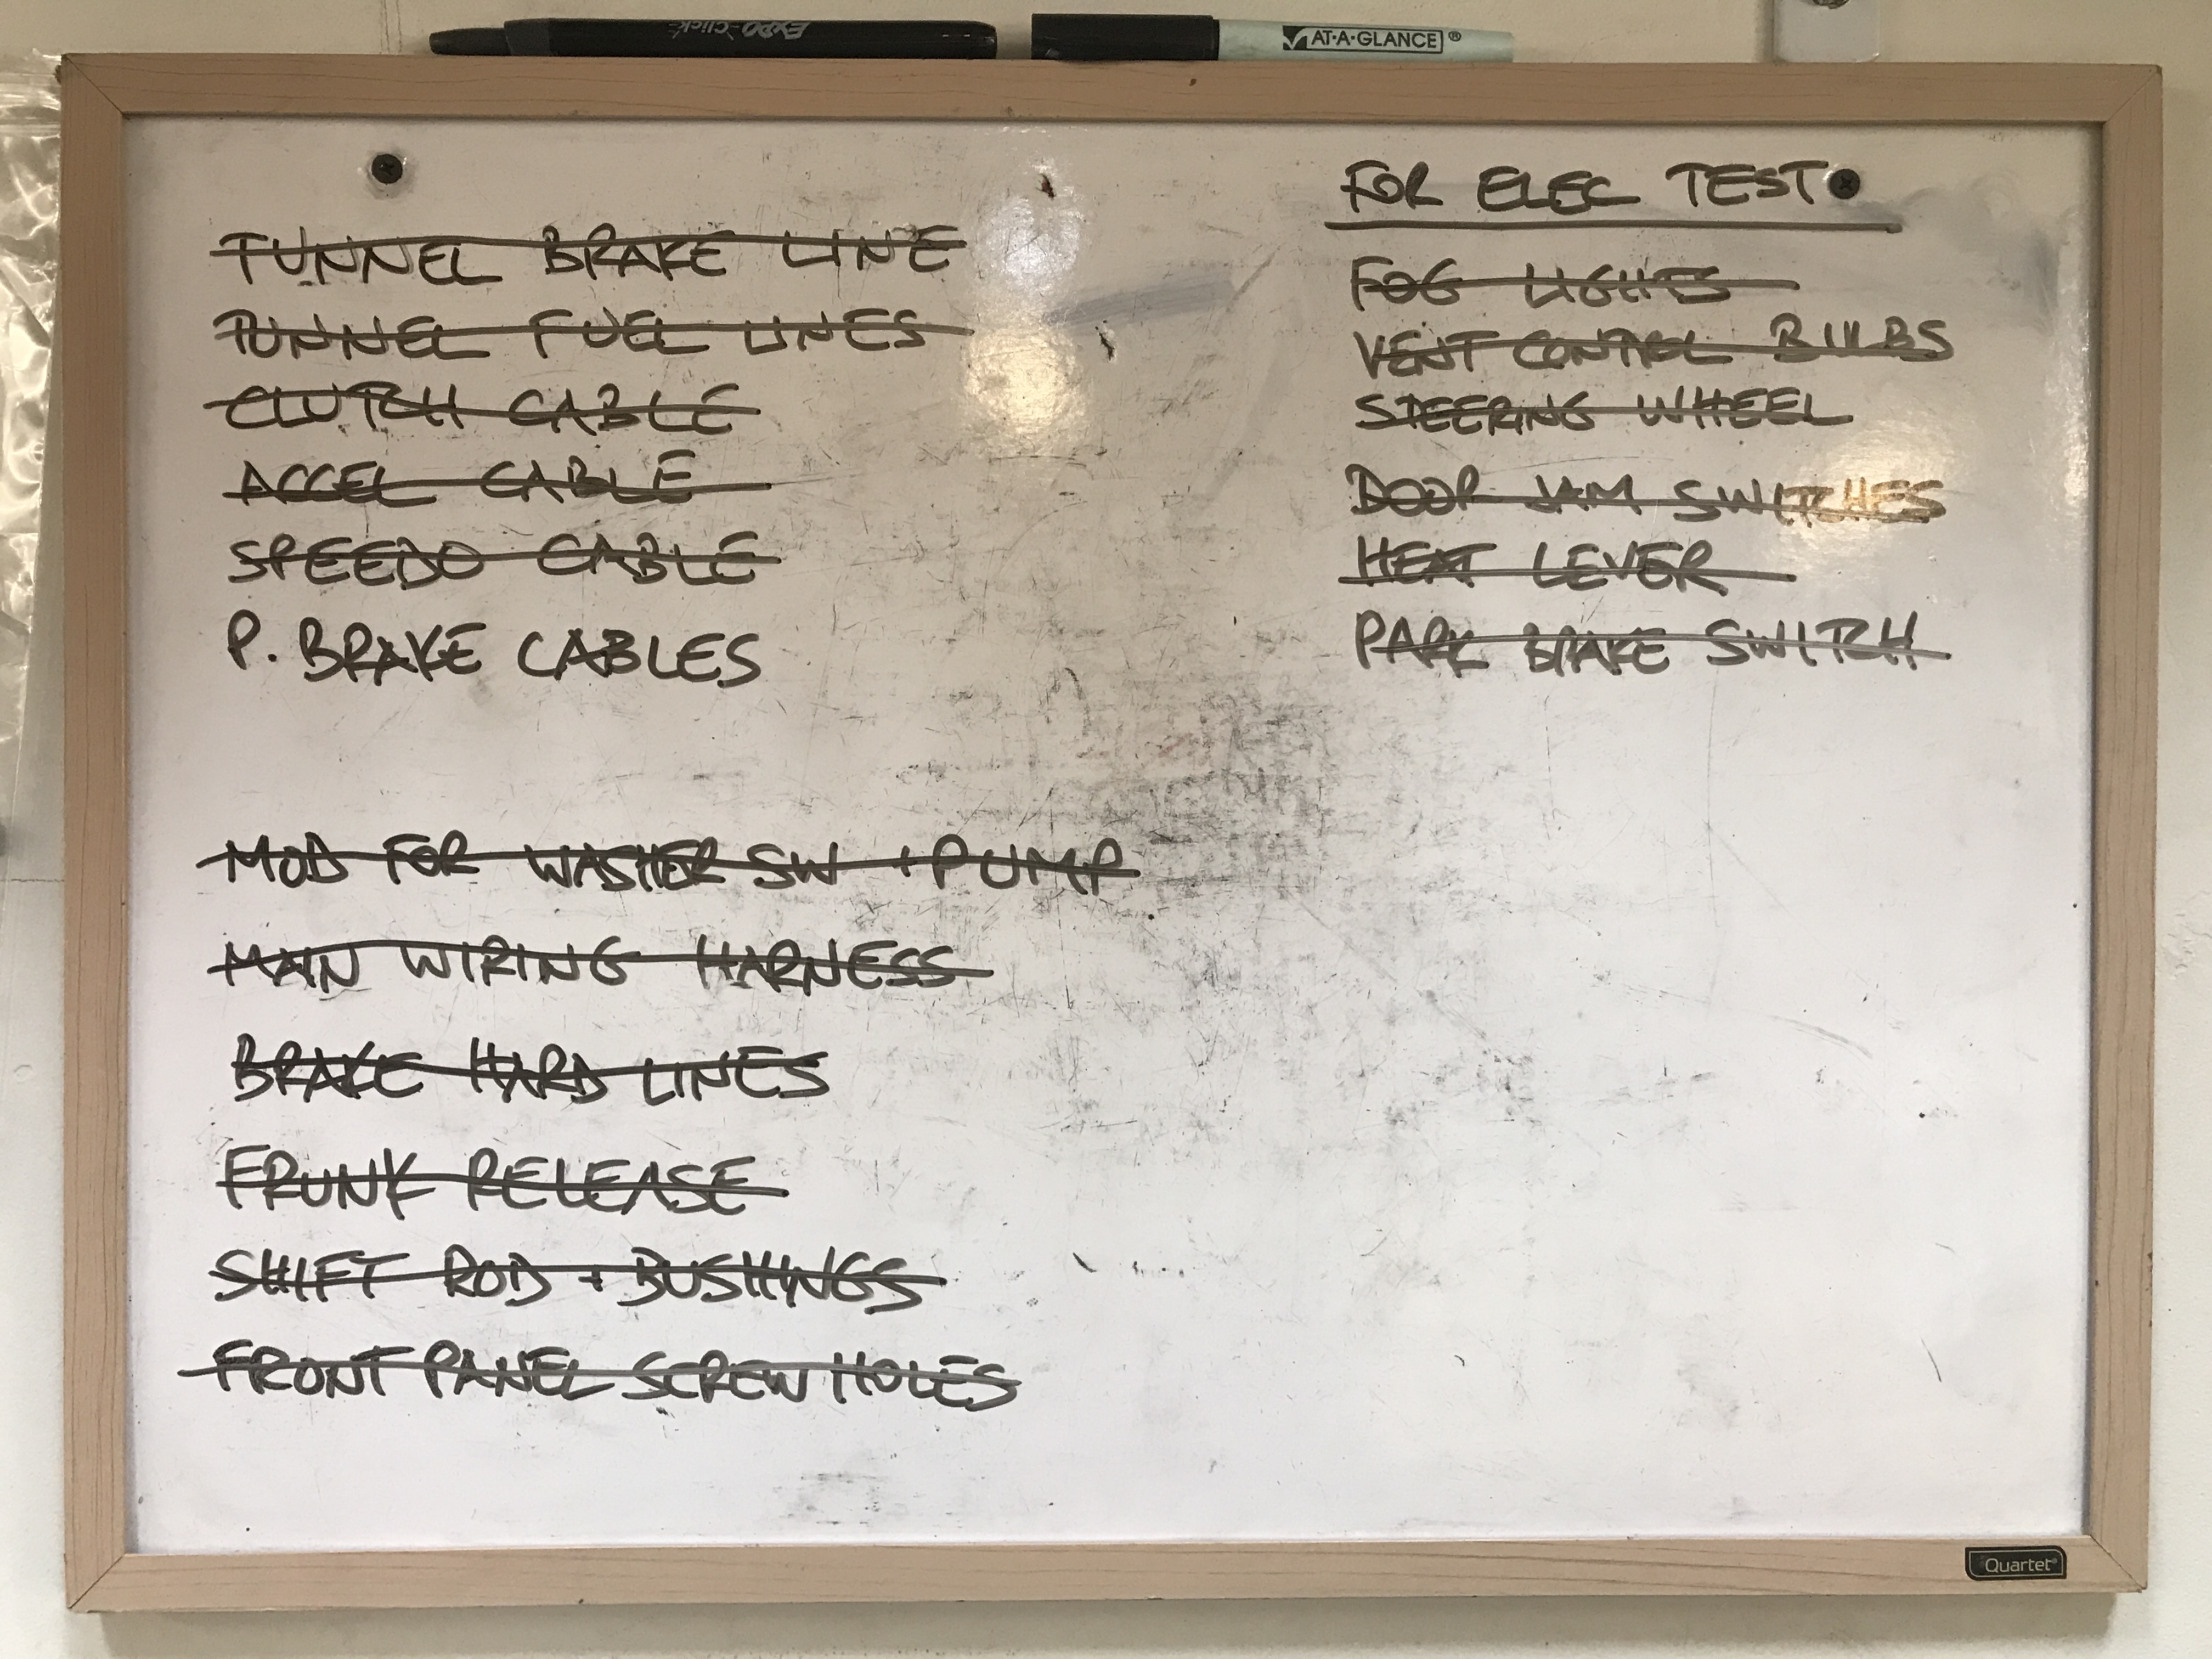 EXPO Click
AT-A-GLANCE®
TUNNEL BRAKE LINE
TUNNEL FUEL LINES
CLUTCH CABLE
ACCEL CABLE
SPEEDO CABLE
P. BRAKE CABLES
MOD FOR WASHER SW + PUMP
MAIN WIRING HARNESS
BRAKE HARD LINES
FRUNK RELEASE
SHIFT ROD + BUSHINGS
FRONT PANEL SCREW HOLES
FOR ELEC TEST
FOG LIGHTS
VENT CONTROL BULBS
STEERING WHEEL
DOOR JAM SWITCHES
HEAT LEVER
PARK BRAKE SWITCH
Quartet